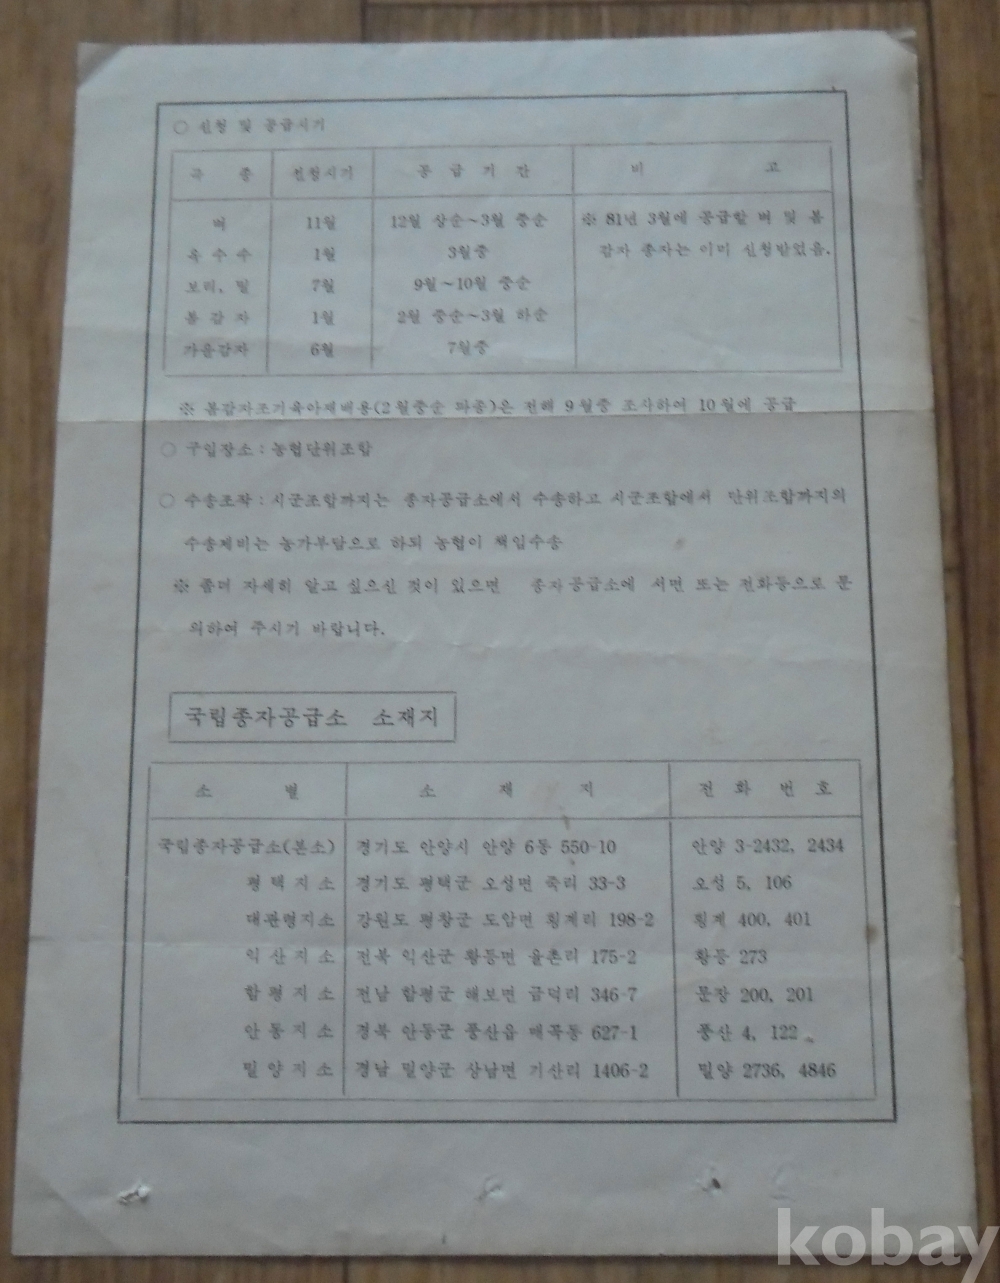 ○ 신청 및 공급시기
곡 종 신청시기 공 급 기 간 비 고
벼 11월 12월 상순~3월 중순 ※ 81년 3월에 공급할 벼 및 봄
옥 수 수 1월 3월중 감자 종자는 이미 신청받았음.
보리, 밀 7월 9월~10월 중순
봄 감 자 1월 2월 중순~3월 하순
가을감자 6월 7월중
※ 봄감자조기육아재배용(2월중순 파종)은 전해 9월중 조사하여 10월에 공급
○ 구입장소 : 농협단위조합
○ 수송조작 : 시군조합까지는 종자공급소에서 수송하고 시군조합에서 단위조합까지의
수송제비는 농가부담으로 하되 농협이 책임수송
※ 좀더 자세히 알고 싶으신 것이 있으면 종자공급소에 서면 또는 전화등으로 문
의하여 주시기 바랍니다.
국립종자공급소 소재지
소 별 소 재 지 전 화 번 호
국립종자공급소(본소) 경기도 안양시 안양 6동 550-10 안양 3-2432, 2434
평택지소 경기도 평택군 오성면 죽리 33-3 오성 5, 106
대관령지소 강원도 평창군 도암면 횡계리 198-2 횡계 400, 401
익산지소 전북 익산군 황등면 율촌리 175-2 황등 273
함평지소 전남 함평군 해보면 금덕리 346-7 문장 200, 201
안동지소 경북 안동군 풍산읍 매곡동 627-1 풍산 4, 122
밀양지소 경남 밀양군 상남면 기산리 1406-2 밀양 2736, 4846
kobay